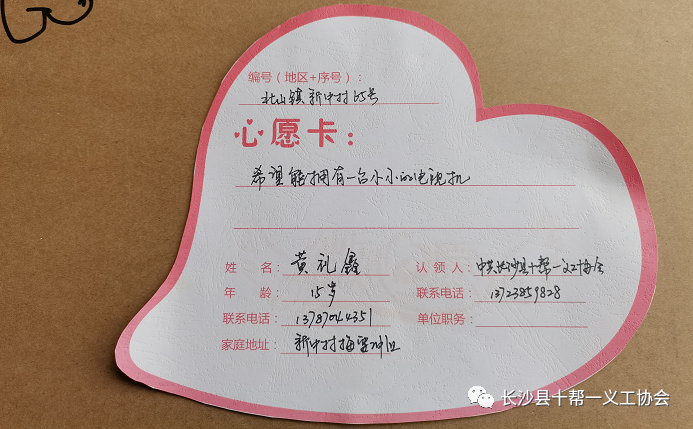 编号（地区+序号）：
北山镇新中村65号
心愿卡：
希望能拥有一台小小的电视机
姓 名：黄礼鑫 认领人：中共长沙县十帮一义工协会
年 龄：15岁 联系电话：13723859828
联系电话：13787044351 单位职务：
家庭地址：新中村
长沙县十帮一义工协会